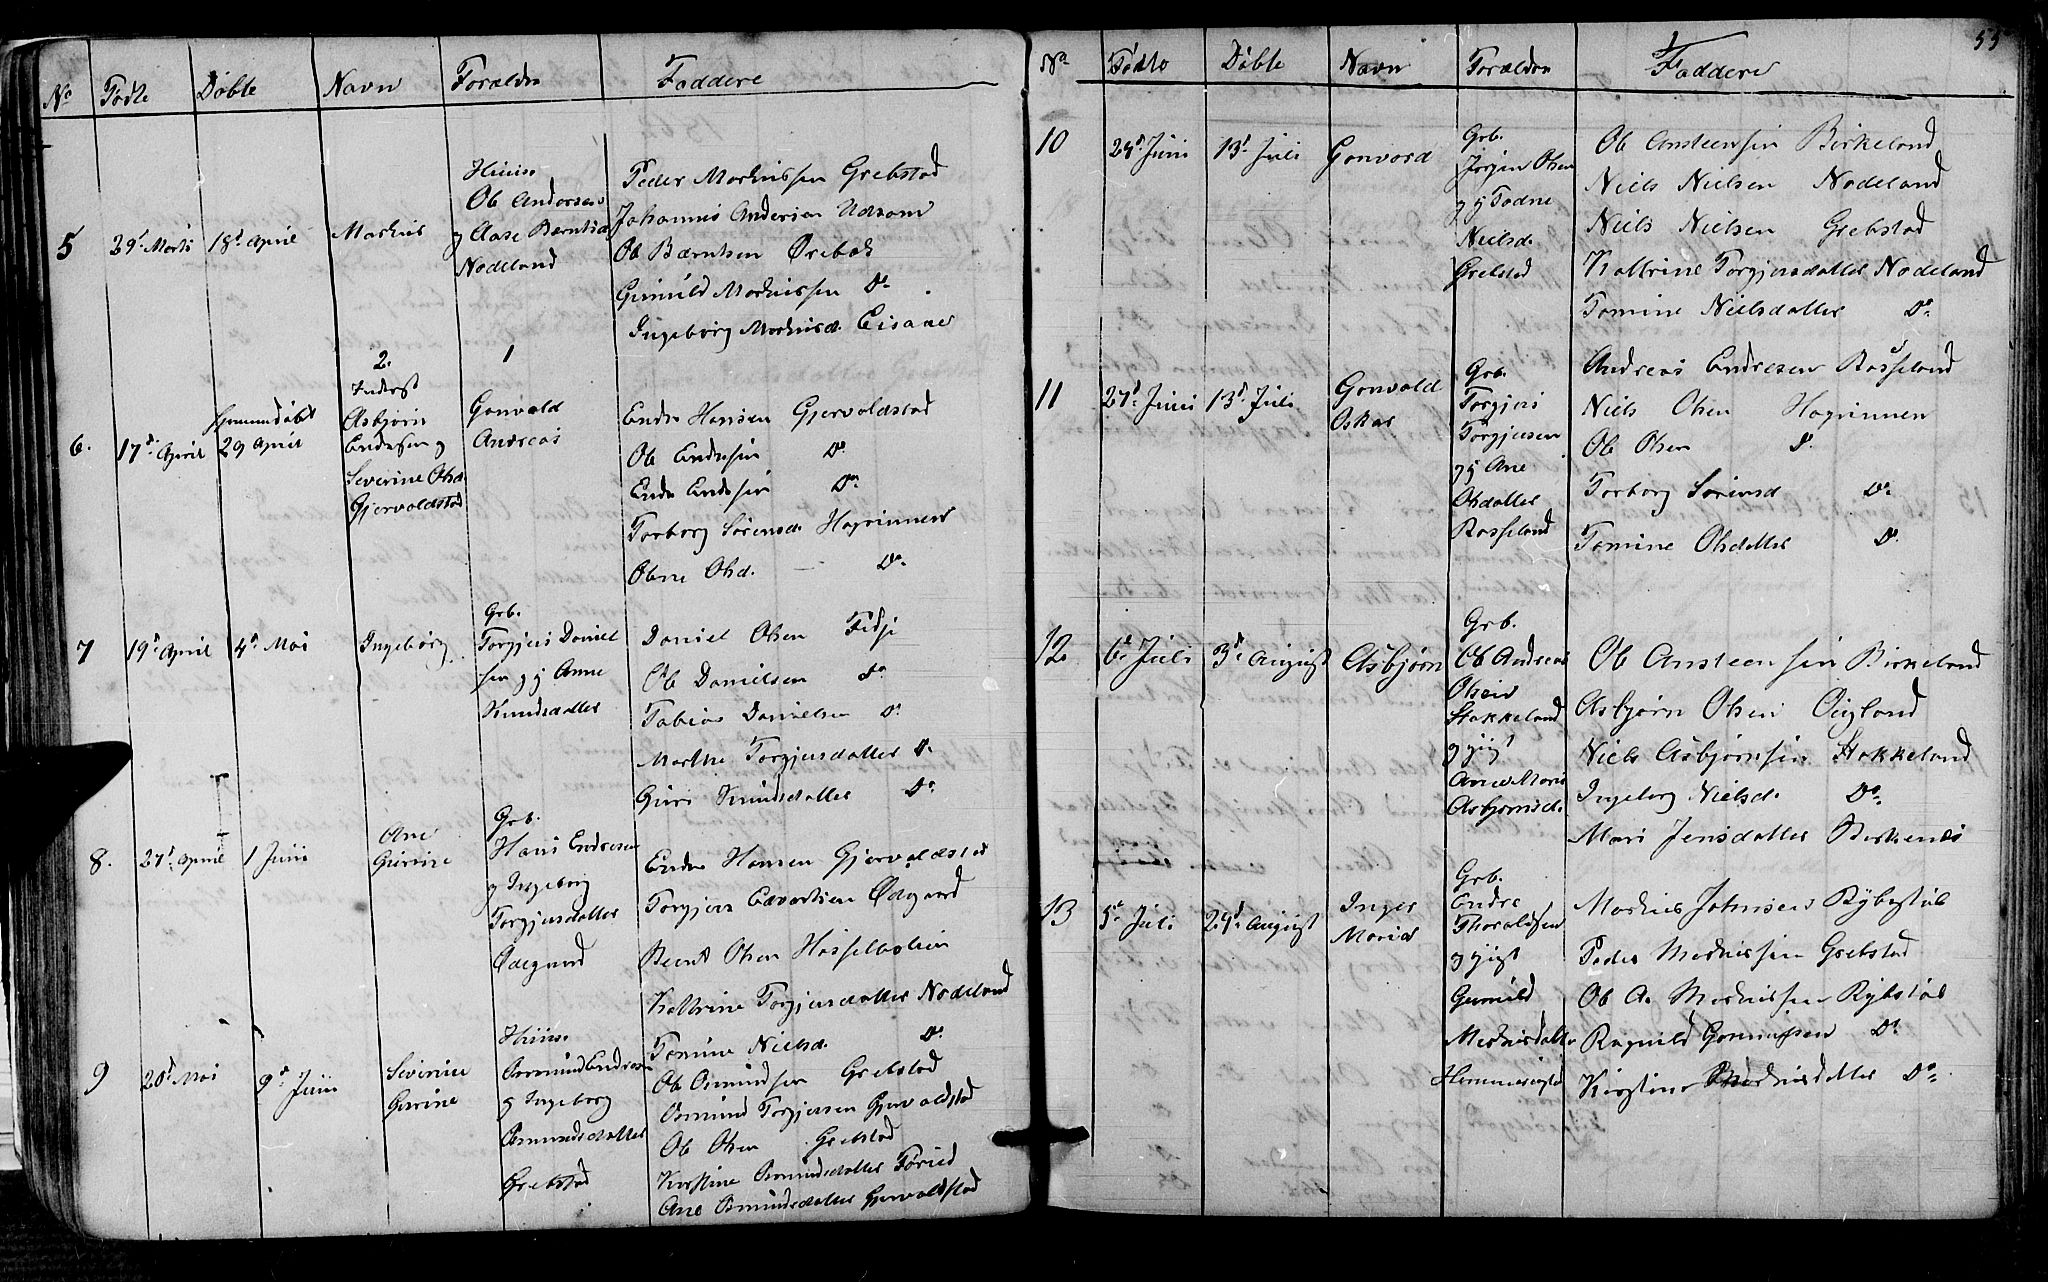 No Fødte Døbte Navn Forældre Faddere
5 29d Marts 18d April Markus
Huusm
Ole Andersen
g Aase Berntsd
Nødeland
Peder Markussen Grebstad
Johannes Andersen
Ole Berntsen Ørebæk
Gunnild Markussen Do
Ingeborg Markusd. Eisaae
6. 17d April
Hjemmedøbt
29 April
2.
Inderst
Asbjørn
Endresen g
Severine Olsd
Gjervoldstad
1
Gonvald
Andreas
Endre Hansen Gjervoldstad
Ole Endresen Do
Endre Endresen Do
Torborg Sørensd. Høgrinnen
Olene Olsd. Do
7 19d April 4d Mai Ingeborg
Grb.
Torgjus Daniel
sen g g Anne
Knudsdatter
Daniel Olsen Fidje
Ole Danielsen Do
Tobias Danielsen Do
Marthe Torgjusdatter Do
Guri Knudsdatter Do
8. 27d April 1 Juni
Ane
Gurine
Grb.
Hans Endresen
g Ingeborg
Torgjusdatter
Ødegaard
Endre Hansen Gjervoldstad
Torgjus Edvardsen Ødegaard
Bernt Olsen
Kattrine Torgjusdatter Nodeland
Tomine Nielsd. Do
9 20d Mai 9d Juni
Severine
Gurine
Huusm.
Osmund Endresen
g Ingeborg
Osmundsdatter
Grebstad
Ole Osmundsen Grebstad
Osmund Torgjusen Gjervoldstad
Ole Olsen Grebstad
Kirstine Osmundsdatter
Ane Osmundsdatter Gjervoldstad
55
No Fødte Døbte Navn Forældre Faddere
10 24d Juni 13d Juli Gonvord
Grb.
Jørgen Olsen
g g Tadne
Nielsd.
Grebstad
Ole Ansteensen Birkeland
Niels Nielsen Nodeland
Niels Nielsen Grebstad
Kattrine Torgjusdatter Nodeland
Tomine Nielsdatter Do
11 27d Juni 13d Juli
Gonvald
Oskar
Grb.
Torgjus
Torgjusen
g g Ane
Olsdatter
Rosseland
Andreas Endresen Rosseland
Niels Olsen Høgrinnen
Ole Olsen Do
Torborg Sørensd Do
Tomine Olsdatter Do
12 6d Juli 3d August Asbjørn
Grb.
Ole Andreas
Olsen
Stokkeland
g gigt
Ane Marie
Asbjørnsd.
Ole Ansteensen Birkeland
Asbjørn Olsen Øigland
Niels Asbjørnsen Stokkeland
Ingeborg Nielsd. Do
Mari Jensdatter Birkenes
13 5d Juli 24d August
Inger
Maria
Grb.
Endre
Thoraldsen
g gigt
Gunnild
Markusdatter
Markus Johnsen Rybestøl
Peder Markussen Grebstad
Ole A. Markussen Rybstøl
Ragnild Do
Kirstine Markusdatter Do